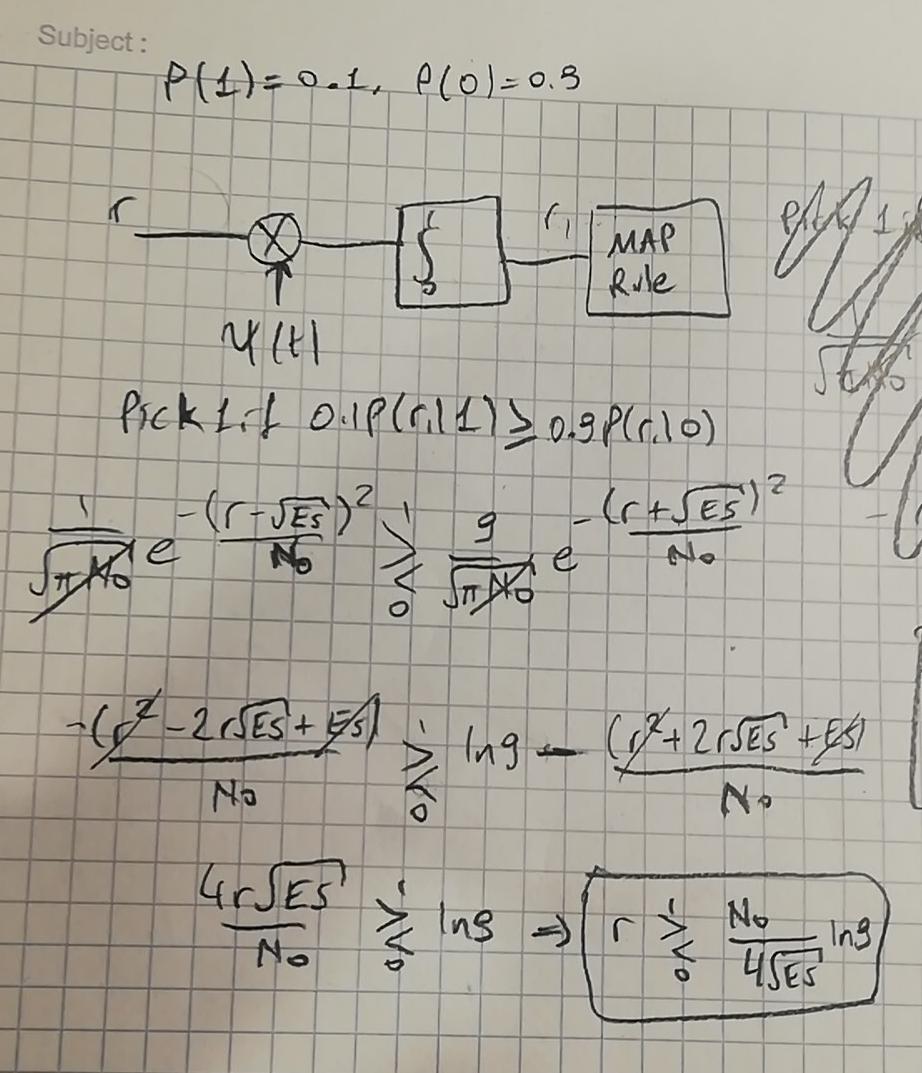 Subject:
P(1)=0.1, P(0)=0.9
r
r₁
MAP
Rule
ψ(t)
Pick 1 if 0.1P(r₁|1) ≥ 0.9P(r₁|0)
1/√(πN₀) e^(-(r-√Es)²/N₀) ≷ 9/√(πN₀) e^(-(r+√Es)²/N₀)
-(r²-2r√Es+Es)/N₀ ≷ ln9 - (r²+2r√Es+Es)/N₀
4r√Es/N₀ ≷ ln9 ⇒ r ≷ N₀/(4√Es) ln9